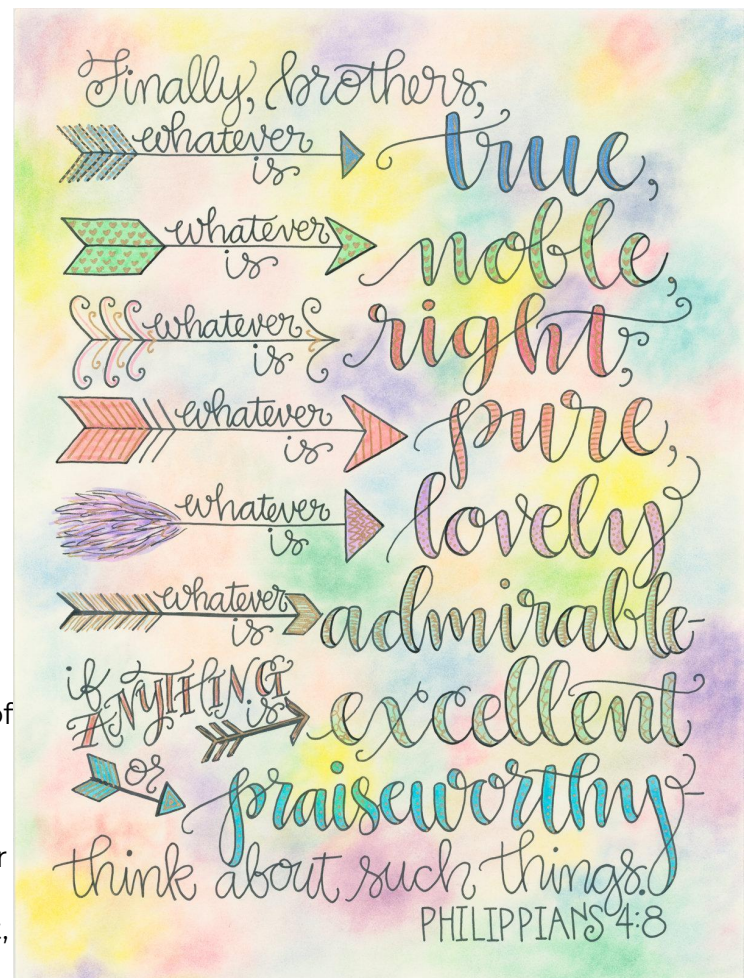 Finally, brothers,
whatever is true,
whatever is noble,
whatever is right,
whatever is pure,
whatever is lovely
whatever is admirable-
if ANYTHING is excellent
or praiseworthy-
think about such things.
PHILIPPIANS 4:8